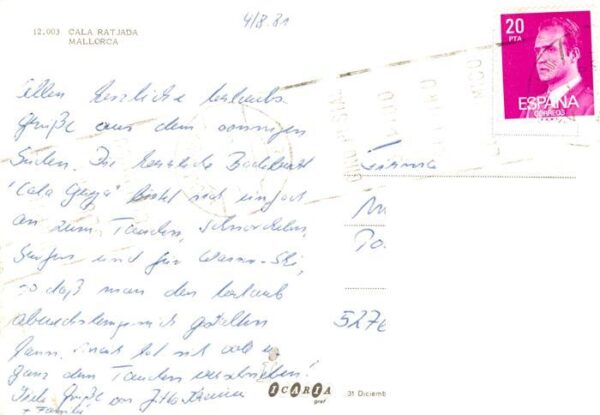 4/8.81
12.003 CALA RATJADA
MALLORCA
20
PTA
ESPAÑA
CORREOS
Allen herzliche Urlaubs
grüße aus dem sonnigen
Süden. Die herrliche Badebucht
"Cala" bietet sich einfach
an zum Tauchen, Schnorcheln,
Surfen und für Wasser-Ski,
so daß man den Urlaub
abwechslungsreich gestalten
kann. hat sich
ganz dem Tauchen verschrieben!
Viele Grüße von
+ Familie
Firma
527
ICARIA
graf
31 Diciemb